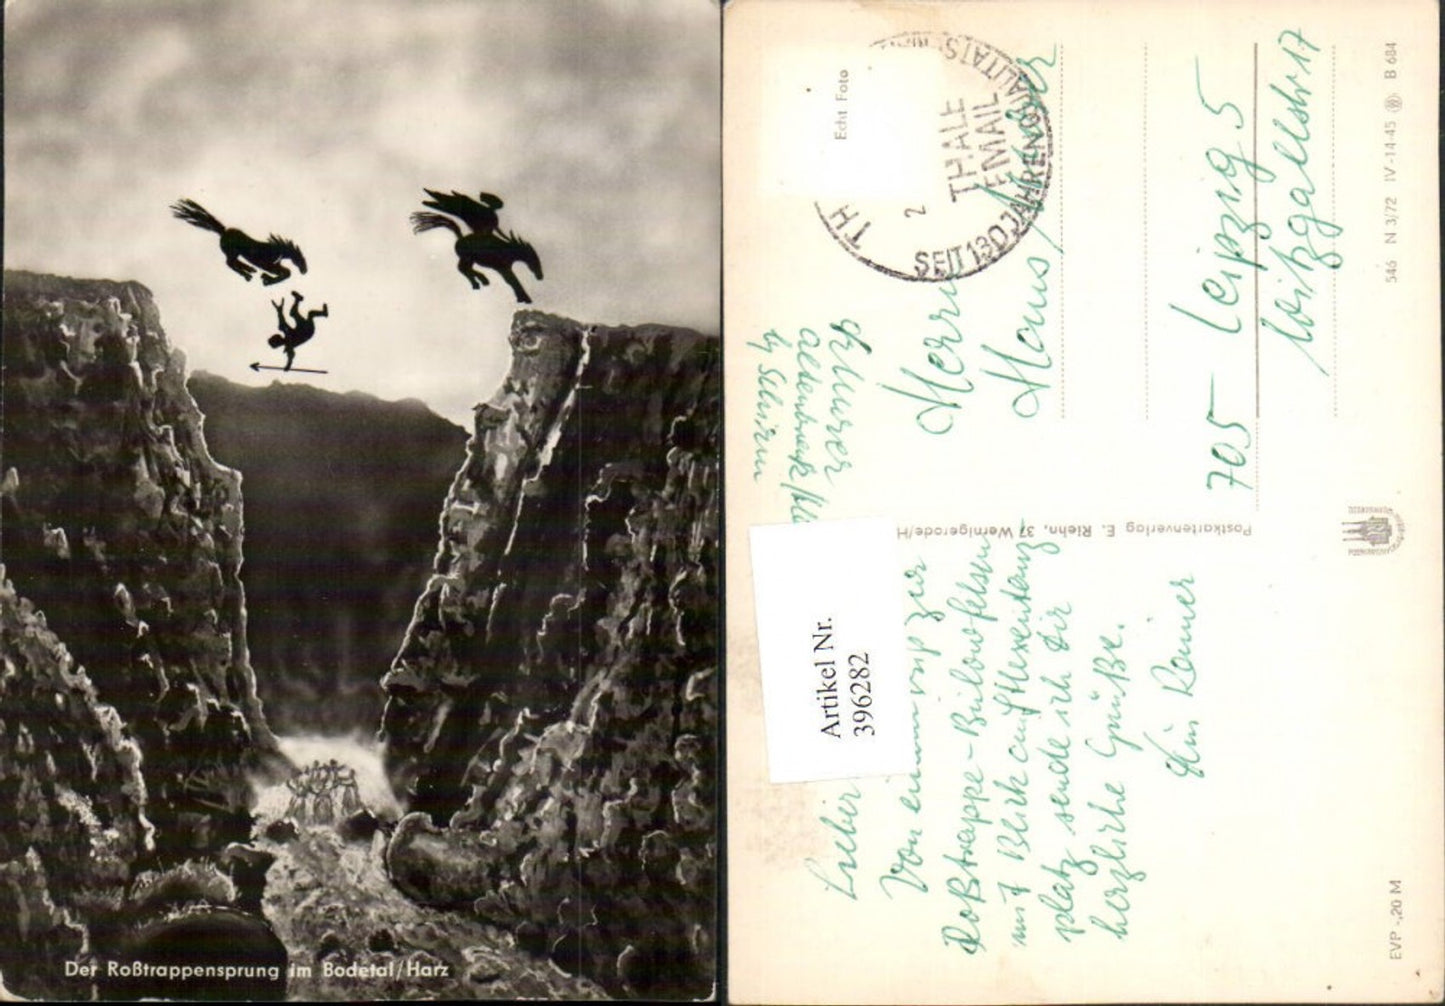 Der Roßtrappensprung im Bodetal/Harz
Echt Foto
TH
2
THALE
EMAIL
SEIT 130 JAHREN QUALITÄTS
Artikel Nr.
396282
Lieber
Von einem
zur
Roßtrappe-Bülowfelsen
mit Blick auf Hexentanz
platz sende ich Dir
herzliche Grüße.
Dein Rainer
by Schirm
Postkartenverlag E. Riehn, 37 Wernigerode/H
Herrn
Hans
705 - Leipzig 5
17
546 N 3/72 IV-14-45 B 684
EVP -,20 M